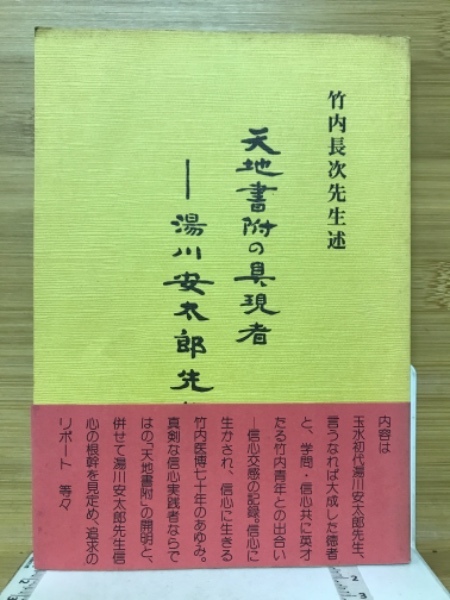 竹内長次先生述
天地書附の具現者
──湯川安太郎先
内容は
玉水初代湯川安太郎先生、
言うなれば大成した徳者
と、学問・信心共に英才
たる竹内青年との出合い
―信心交感の記録。信心に
生かされ、信心に生きる
竹内医博七十年のあゆみ。
真剣な信心実践者ならで
はの「天地書附」の開明と、
併せて湯川安太郎先生信
心の根幹を見定め、追求の
リポート 等々
2
3